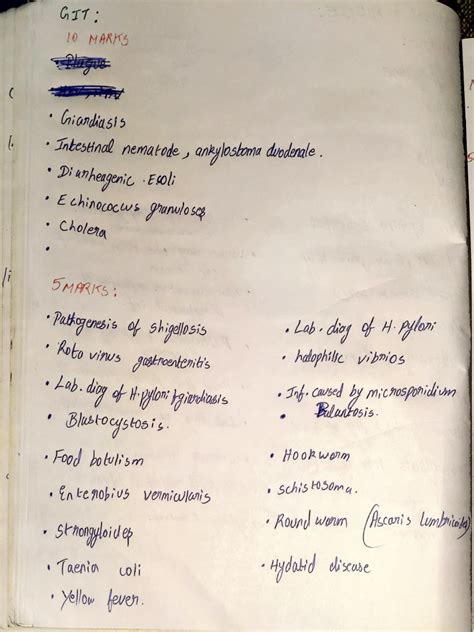 GIT:
10 MARKS
• Plague
• Giardiasis
• Intestinal nematode, ankylostoma duodenale.
• Diarrheagenic E.coli
• Echinococcus granulosus
• Cholera
•
5 MARKS:
• Pathogenesis of shigellosis
• Rota virus gastroenteritis
• Lab. diag of H. pylori & giardiasis
• Blastocystosis.
• Food botulism
• Enterobius vermicularis
• Strongyloides
• Taenia coli
• Yellow fever.
• Lab. diag of H. pylori
• halophilic vibrios
• Inf. caused by microsporidium
• Balantosis.
• Hookworm
• schistosoma.
• Round worm (Ascaris lumbricoides)
• Hydatid disease